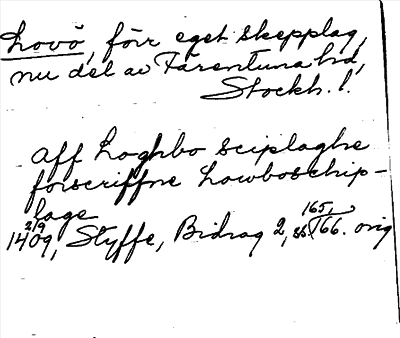 Lovö, förr eget skepplag,
nu del av Färentuna hd,
Stockh. l.
aff Loghbo sciplaghe
forscriffne Lowboschip-
lage
1409 2/9, Styffe, Bidrag 2, ss. 165, 166. orig